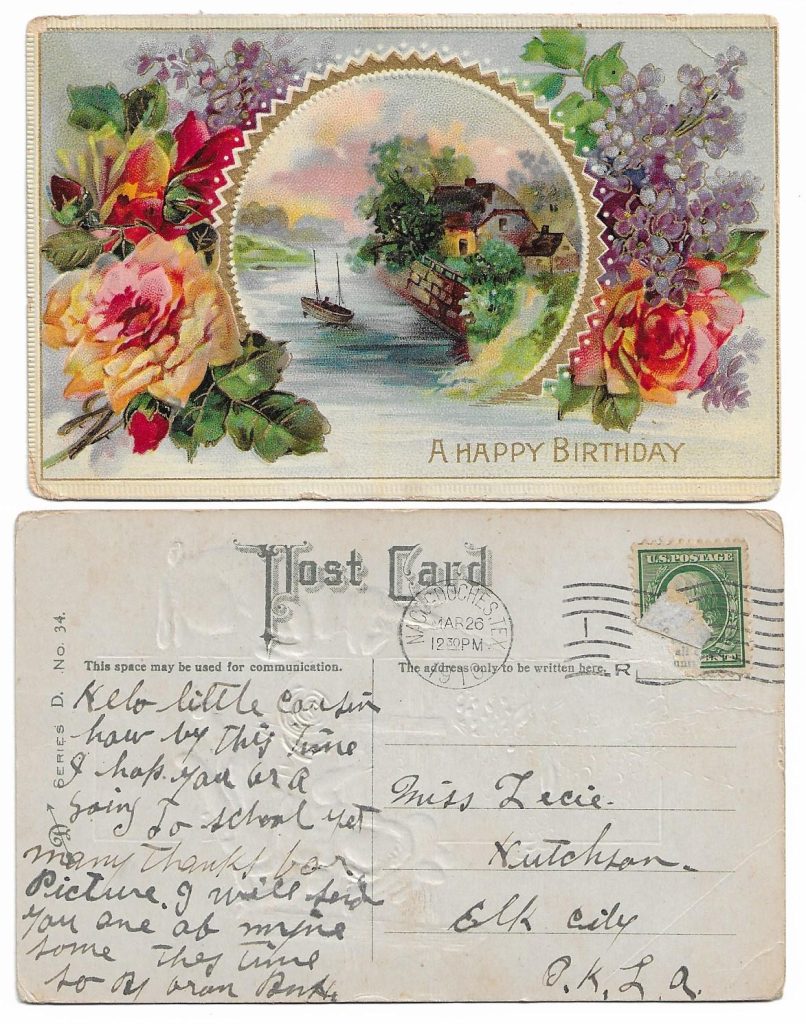 A HAPPY BIRTHDAY
Post Card
NACOGDOCHES, TEX.
MAR 26
12 30 PM
1910
U.S. POSTAGE
This space may be used for communication.
The address only to be written here.
SERIES D. No. 34.
Helo little cousin
how by this time
I hop you ar a
going to school yet
many thanks for
Picture. I will send
you one of mine
some this time
so By
Miss Lecie
Hutchson
Elk City
O.K.L.A.